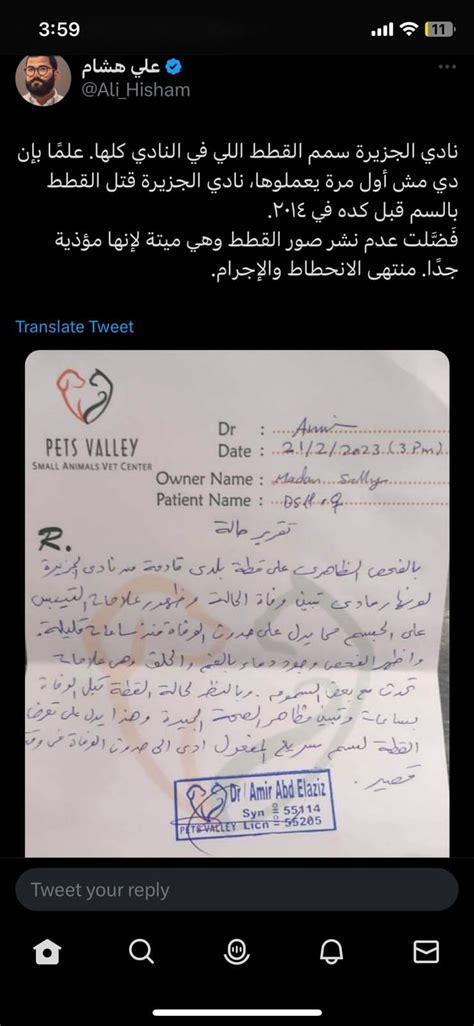 3:59
11
علي هشام
@Ali_Hisham
نادي الجزيرة سمم القطط اللي في النادي كلها. علمًا بإن
دي مش أول مرة يعملوها، نادي الجزيرة قتل القطط
بالسم قبل كده في ٢٠١٤.
فَضَّلت عدم نشر صور القطط وهي ميتة لإنها مؤذية
جدًا. منتهى الانحطاط والإجرام.
Translate Tweet
PETS VALLEY
SMALL ANIMALS VET CENTER
Dr : Amir
Date : 21/2/2023 (3 Pm)
Owner Name : Madam Sally
Patient Name :
تقرير حالة
R.
بالفحص الظاهرى على قطة بلدى قادمة من نادى الجزيرة
لونها رمادى تبين وفاة الحالة وظهور علامات التيبس
على الجسم مما يدل على حدوث الوفاة منذ ساعات قليلة.
واظهر الفحص وجود دماء بالفم والحلق وهى علامات
تحدث مع بعض السموم. وبالنظر لحالة القطة قبل الوفاة
بساعات وتبين مظاهر الصحة الجيدة وهذا يدل على تعرض
القطة لسم سريع المفعول ادى الى حدوث الوفاة فى وقت
قصير.
Dr / Amir Abd Elaziz
Syn No = 55114
PETS VALLEY Licn No = 55205
Tweet your reply